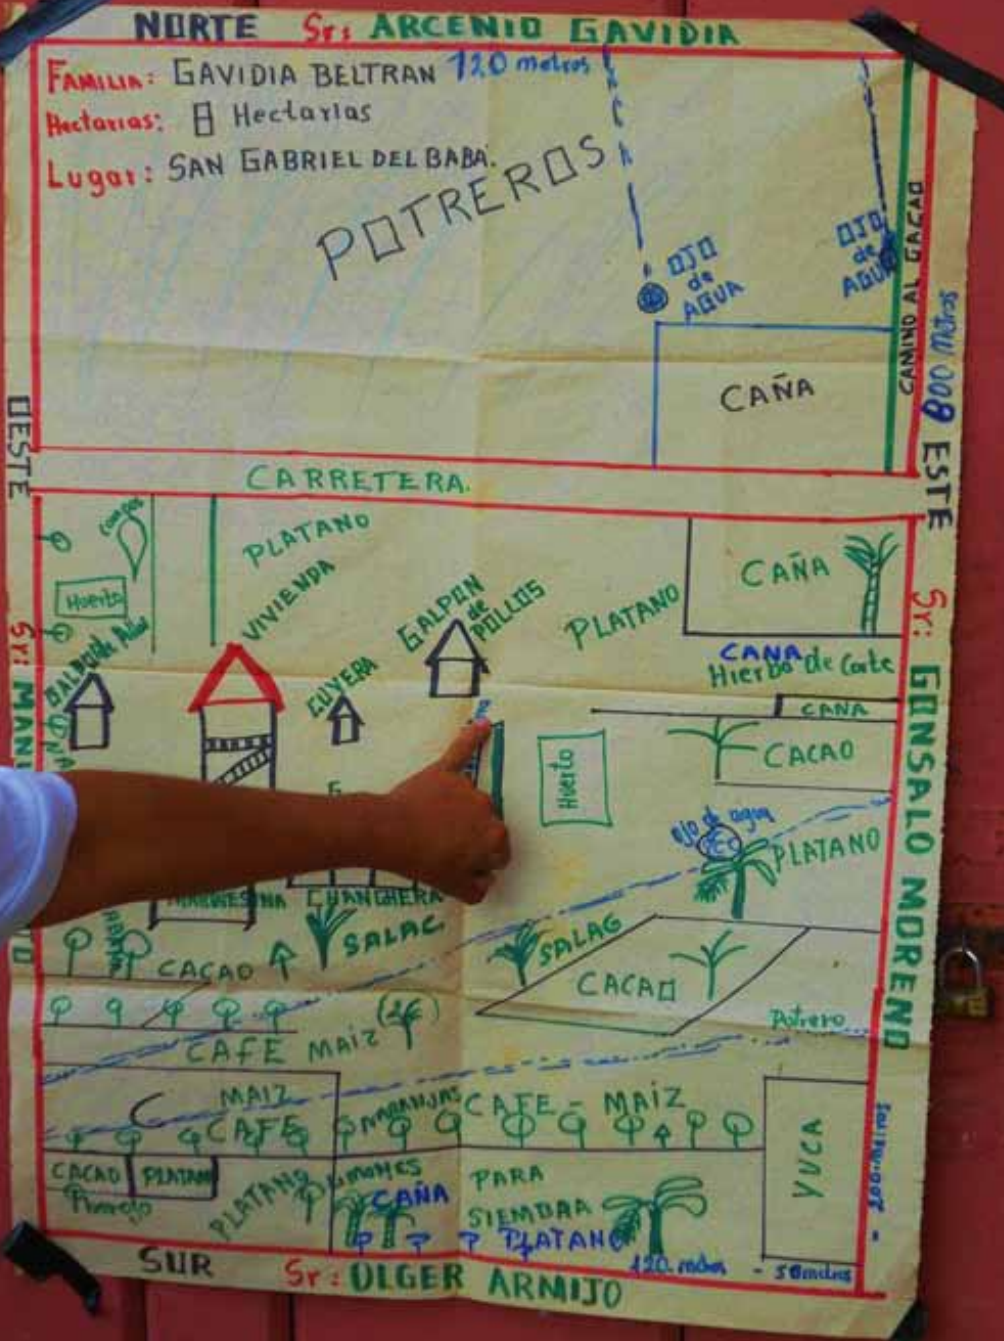 NORTE Sr: ARCENIO GAVIDIA
FAMILIA: GAVIDIA BELTRAN 120 metros
Hectarias: 8 Hectarias
Lugar: SAN GABRIEL DEL BABA.
POTREROS
OJO
de
AGUA
OJO
de
AGUA
CAMINO AL CACAO
800 metros
CAÑA
OESTE
ESTE
CARRETERA.
PLATANO
VIVIENDA
Huerto
GALPON
de
POLLOS
CUYERA
PLATANO
CAÑA
CAÑA
Hierba de Corte
CAÑA
CACAO
Huerto
Sr: GONSALO MORENO
Sr:
ojo de agua
PLATANO
CHANCHERA
SALAC
SALAG
CACAO
CACAO
Potrero
CAFE MAIZ
MAIZ
CAFE
NARANJAS
CAFE - MAIZ
YUCA
CACAO
PLATANO
PLATANO
LIMONES
CAÑA
PARA
SIEMBRA
PLATANO
120 metros - 50 metros
SUR Sr: OLGER ARMIJO